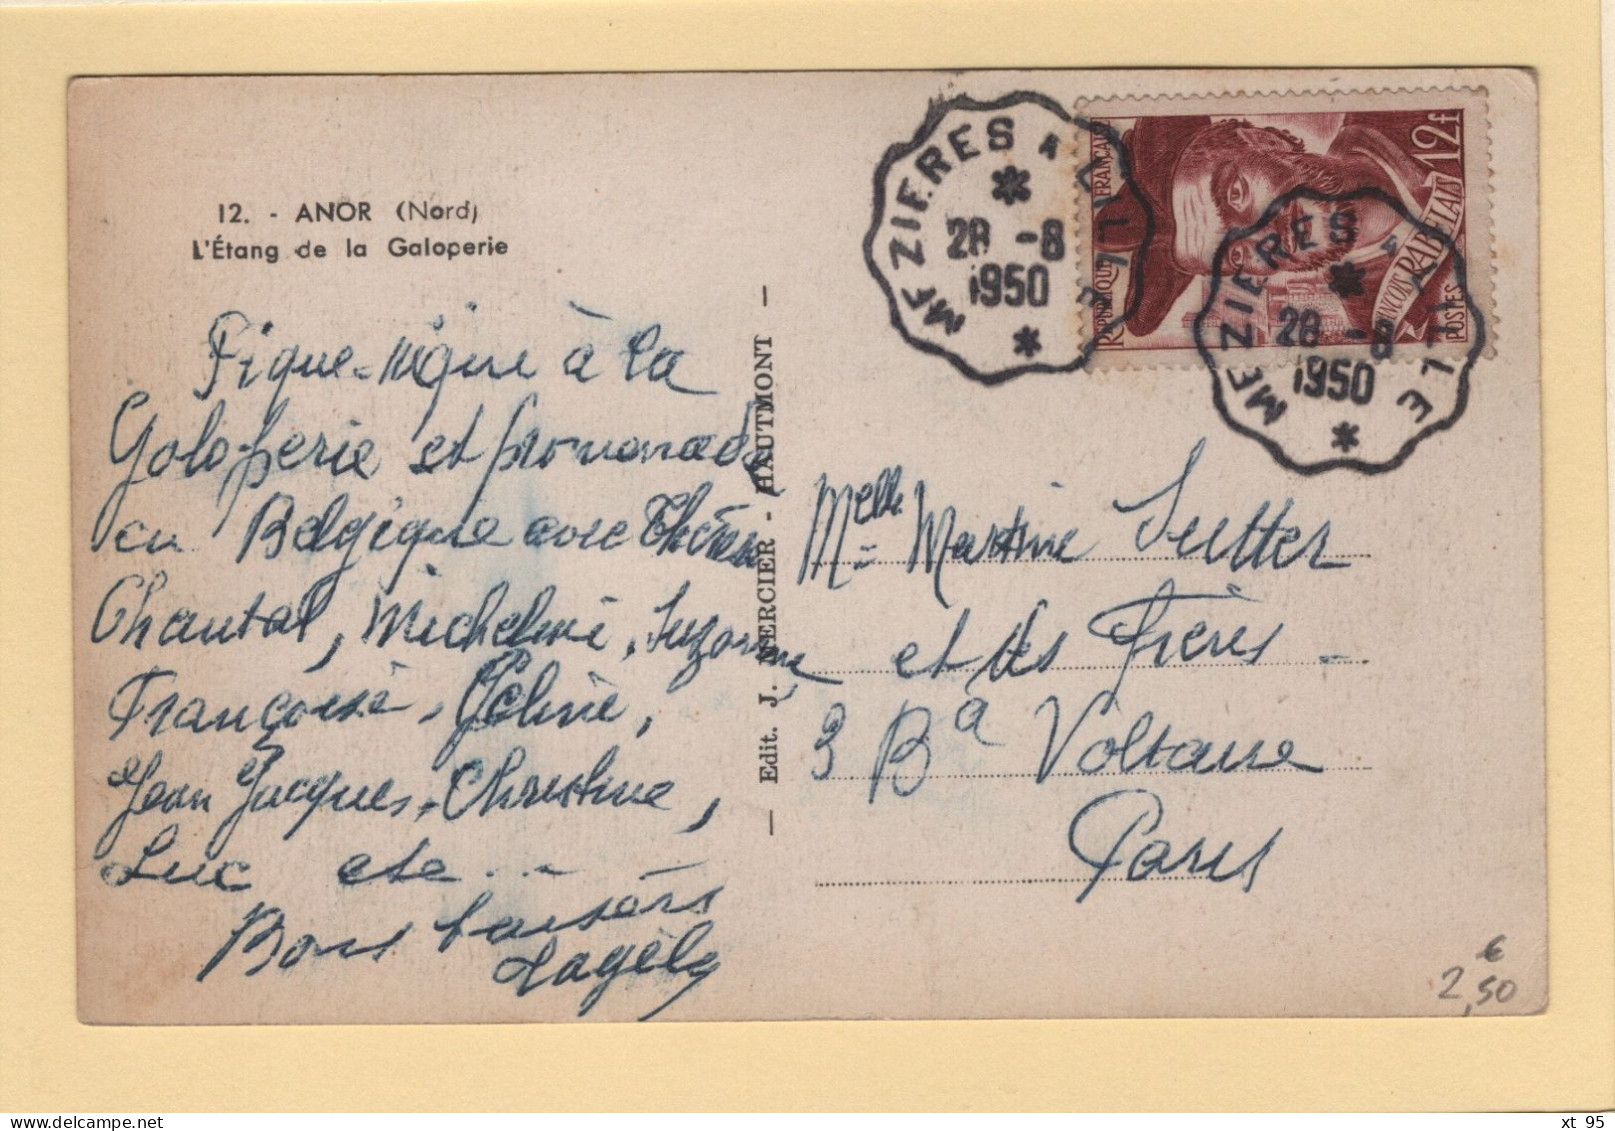 12. - ANOR (Nord)
L'Étang de la Galoperie
Pique-nique à la
Galoperie et promenade
en Belgique avec
Chantal, Micheline, Suzanne,
Françoise, Céline,
Jean Jacques, Christine,
Luc etc...
Bons baisers
Edit. J. MERCIER - HAUTMONT
MEZIERES A LILLE
28 -8
1950
REPUBLIQUE FRANÇAISE
12f
FRANÇOIS RABELAIS
POSTES
MEZIERES A LILLE
28 -8
1950
Melle Martine Sutter
et ses Frères
3 Bd Voltaire
Paris
€
2,50
xt 95